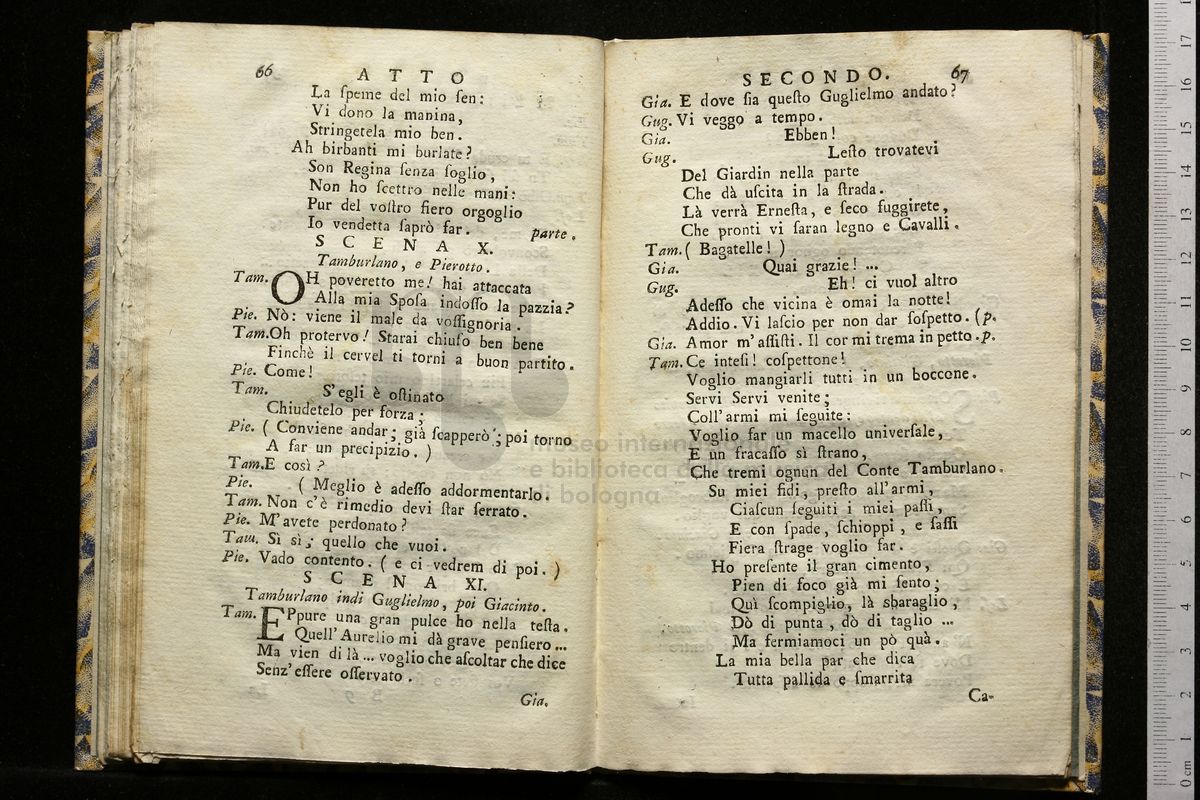 66
ATTO
La ſpeme del mio ſen:
Vi dono la manina,
Stringetela mio ben.
Ah birbanti mi burlate?
Son Regina ſenza ſoglio,
Non ho ſcettro nelle mani:
Pur del voſtro fiero orgoglio
Io vendetta ſaprò far. parte.
SCENA X.
Tamburlano, e Pierotto.
Tam. OH poveretto me! hai attaccata
Alla mia Spoſa indoſſo la pazzia?
Pie. Nò: viene il male da voſſignoria.
Tam. Oh protervo! Starai chiuſo ben bene
Finchè il cervel ti torni a buon partito.
Pie. Come!
Tam. S'egli è oſtinato
Chiudetelo per forza;
Pie. ( Conviene andar; già ſcapperò; poi torno
A far un precipizio. )
Tam. E così?
Pie. ( Meglio è adeſſo addormentarlo.
Tam. Non c'è rimedio devi ſtar ſerrato.
Pie. M'avete perdonato?
Tam. Sì sì; quello che vuoi.
Pie. Vado contento. ( e ci vedrem di poi. )
SCENA XI.
Tamburlano indi Guglielmo, poi Giacinto.
Tam. EPpure una gran pulce ho nella teſta.
Quell' Aurelio mi dà grave penſiero ...
Ma vien di là ... voglio che aſcoltar che dice
Senz' eſſere oſſervato.
Gia.
SECONDO.
67
Gia. E dove ſia queſto Guglielmo andato?
Gug. Vi veggo a tempo.
Gia. Ebben!
Gug. Leſto trovatevi
Del Giardin nella parte
Che dà uſcita in la ſtrada.
Là verrà Erneſta, e ſeco fuggirete,
Che pronti vi ſaran legno e Cavalli.
Tam. ( Bagatelle! )
Gia. Quai grazie! ...
Gug. Eh! ci vuol altro
Adeſſo che vicina è omai la notte!
Addio. Vi laſcio per non dar ſoſpetto. (p.
Gia. Amor m'aſſiſti. Il cor mi trema in petto. p.
Tam. Ce inteſi! coſpettone!
Voglio mangiarli tutti in un boccone.
Servi Servi venite;
Coll'armi mi ſeguite:
Voglio far un macello univerſale,
E un fracaſſo sì ſtrano,
Che tremi ognun del Conte Tamburlano.
Su miei fidi, preſto all'armi,
Ciaſcun ſeguiti i miei paſſi,
E con ſpade, ſchioppi, e ſaſſi
Fiera ſtrage voglio far.
Ho preſente il gran cimento,
Pien di foco già mi ſento;
Quì ſcompiglio, là sbaraglio,
Dò di punta, dò di taglio ...
Ma fermiamoci un pò quà.
La mia bella par che dica
Tutta pallida e ſmarrita
Ca-
museo internazionale
e biblioteca della musica
di bologna
0 cm 1 2 3 4 5 6 7 8 9 10 11 12 13 14 15 16 17